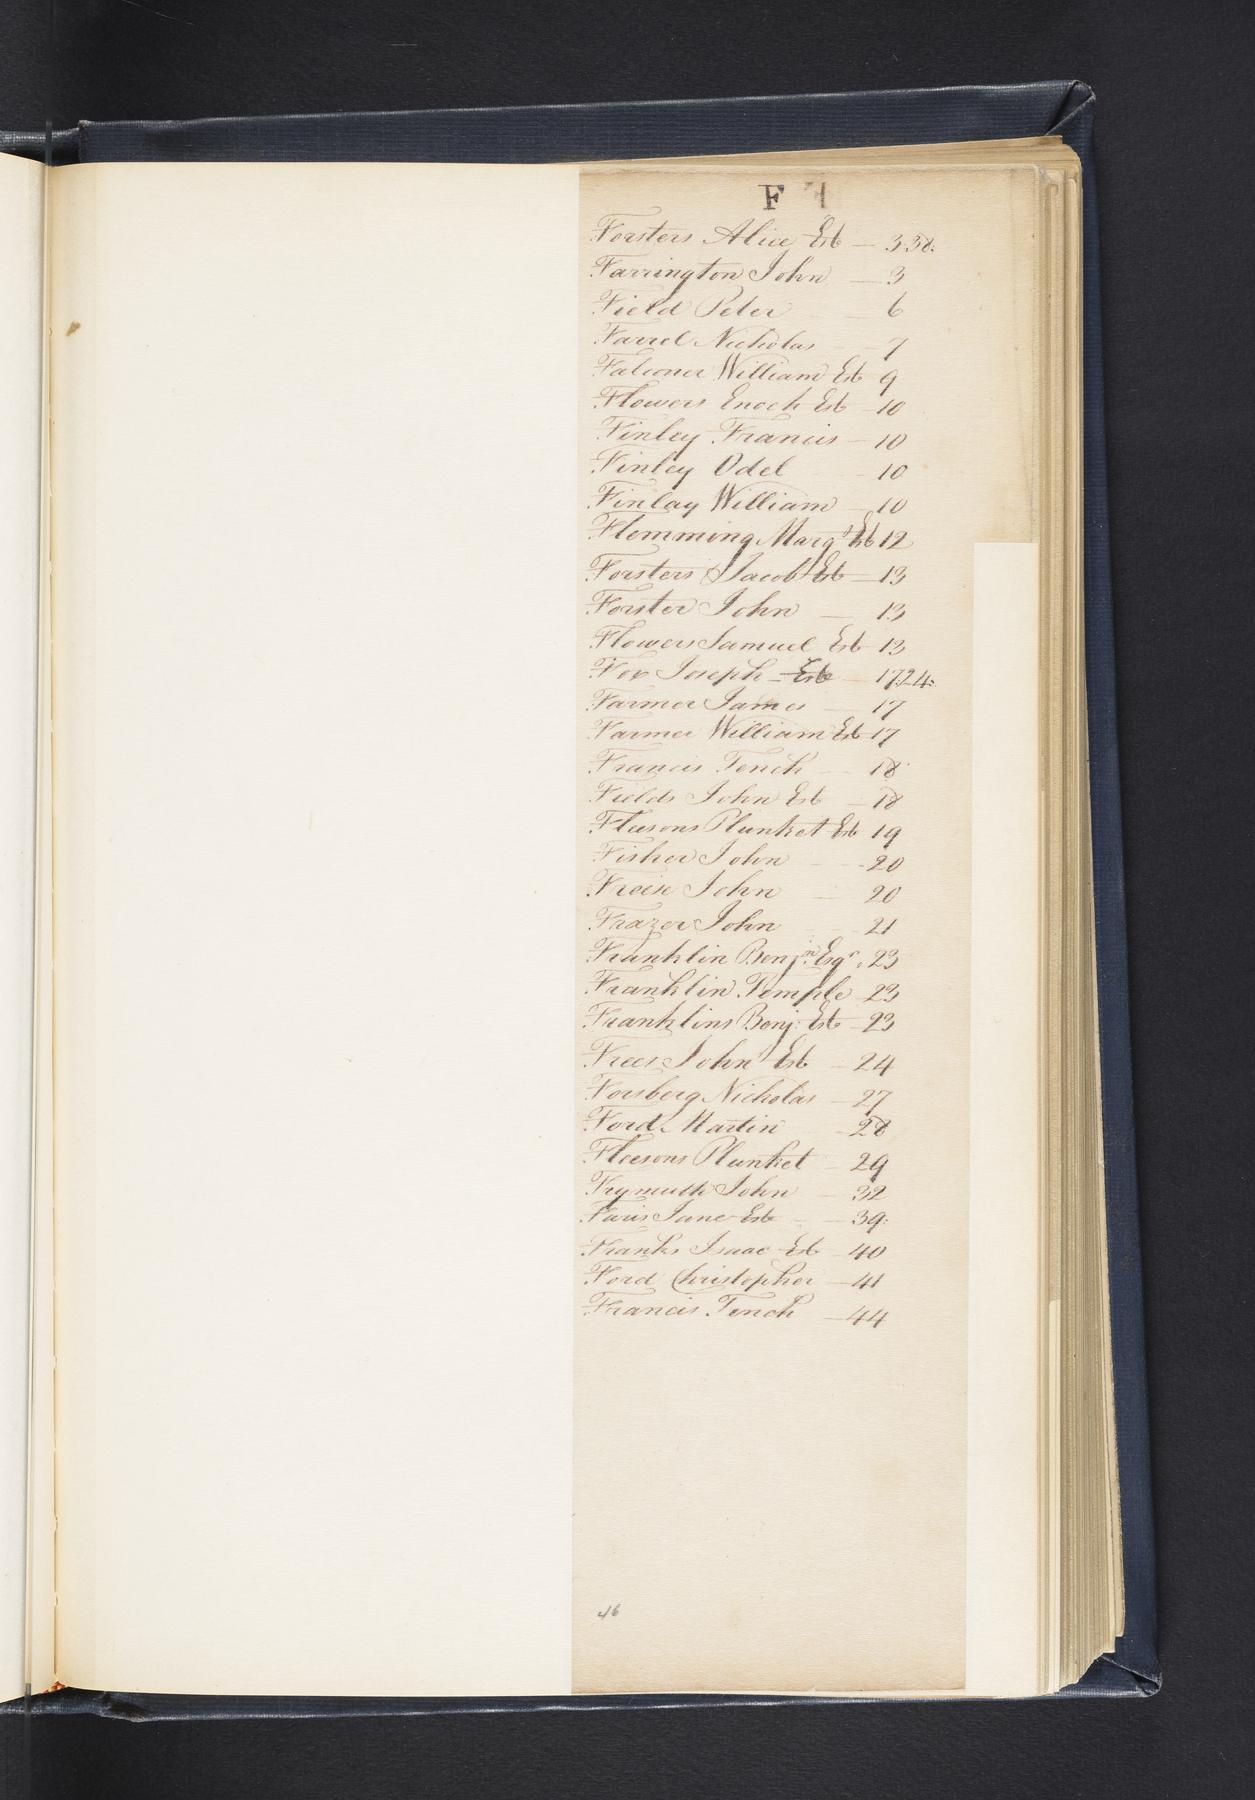 F
Forsters Alice Est — 3.38:
Farrington John — 3
Field Peter — 6
Farrel Nicholas — 7
Falconer William Est 9
Flowers Enoch Est — 10
Finley Francis — 10
Finley Odel — 10
Finlay William — 10
Flemming Margt Est 12
Forsters Jacob Est — 13
Forster John — 13
Flowers Samuel Est 13
Fox Joseph — Est — 17.24:
Farmer James — 17
Farmer William Est 17
Francis Tench — 18
Fields John Est — 18
Fleesons Plunket Est 19
Fisher John — 20
Freise John — 20
Frazer John — 21
Franklin Benjn. Esqr. 23
Franklin Temple — 23
Franklins Benj: Est — 23
Frees John Est — 24
Forsberg Nicholas — 27
Ford Martin — 28
Fleesons Plunket — 29
Frymuth John — 32
Faris Jane Est — 39:
Franks Isaac Est — 40
Ford Christopher — 41
Francis Tench — 44
46